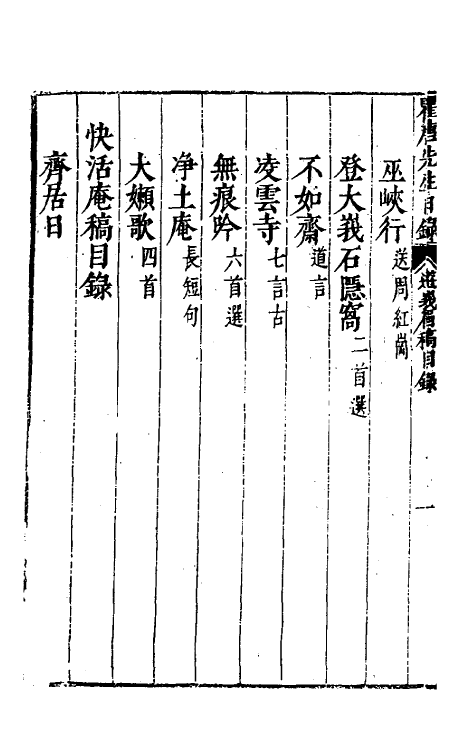 瞿塘先生目錄 遊峩眉稿目錄 一
巫峽行 送周紅崗
登大峩石隱窩 二首選
不如齋 道言
凌雲寺 七言古
無痕吟 六首選
净土庵 長短句
大嬾歌 四首
快活庵稿目錄
齊居日